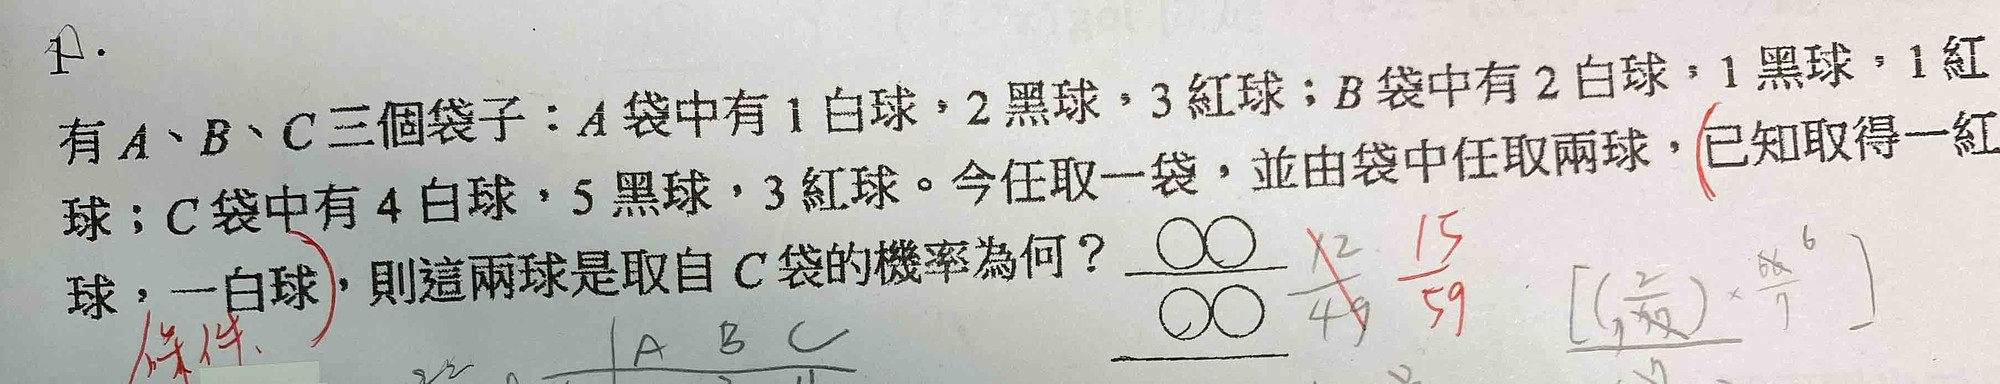 1.
有 A、B、C 三個袋子：A 袋中有 1 白球，2 黑球，3 紅球；B 袋中有 2 白球，1 黑球，1 紅
球；C 袋中有 4 白球，5 黑球，3 紅球。今任取一袋，並由袋中任取兩球，(已知取得一紅
球，一白球)，則這兩球是取自 C 袋的機率為何？ ○○/○○ 15/59
條件、
A B C